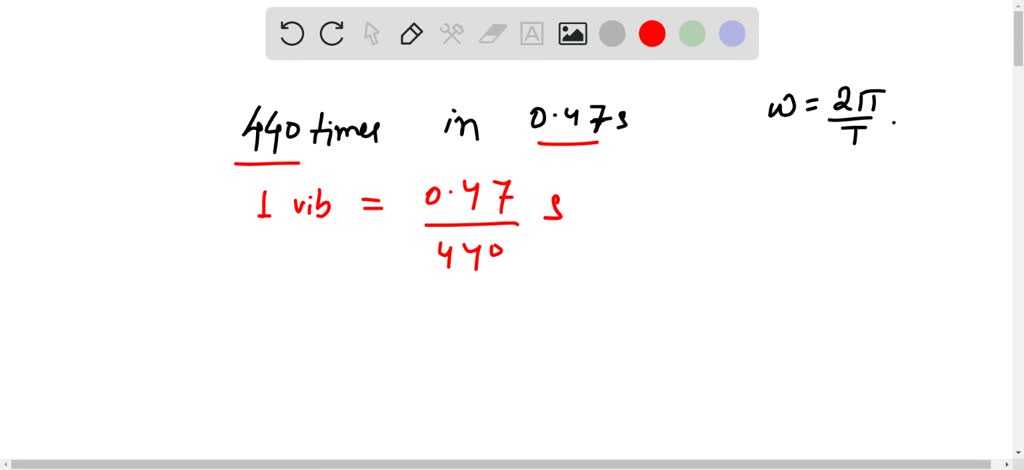 440 times in 0.47s
ω = 2π/T.
1 vib = 0.47/440 s